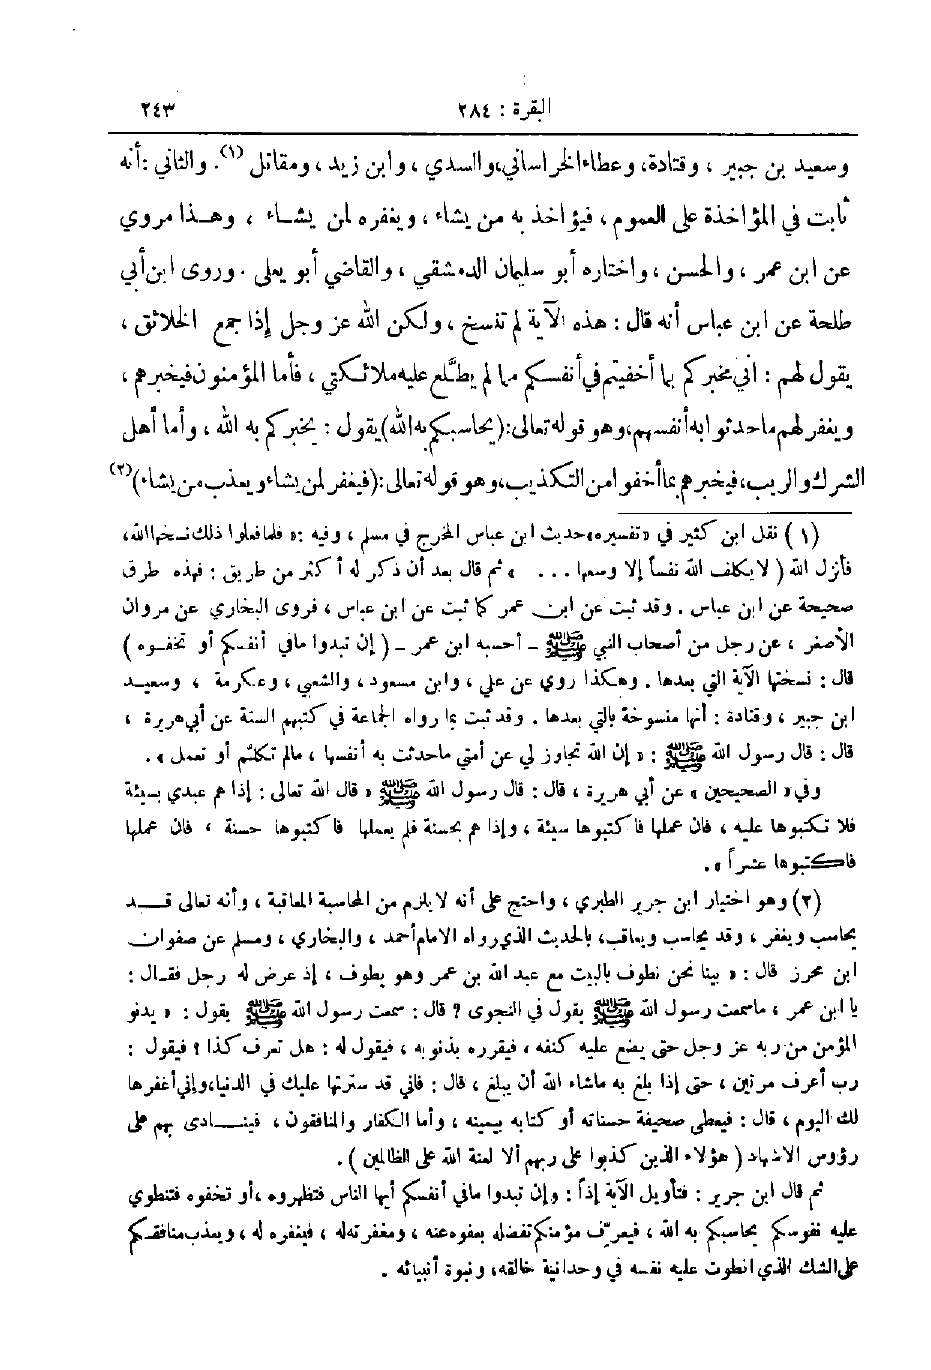 البقرة : ٢٨٤ ٢٤٣
وسعيد بن جبير ، وقتادة، وعطاء الخراساني، والسدي ، وابن زيد ، ومقاتل (١). والثاني :أنه
ثابت في المؤاخذة على العموم ، فيؤاخذ به من يشاء ، ويغفره لمن يشـاء ، وهـذا مروي
عن ابن عمر ، والحسن ، واختاره أبو سليمان الدمشقي ، والقاضي أبو يعلى . وروى ابن أبي
طلحة عن ابن عباس أنه قال : هذه الآية لم تنسخ ، ولكن الله عز وجل إذا جمع الخلائق ،
يقول لهم : اني مخبركم بما أخفيتم في أنفسكم مما لم يطَّلع عليه ملائكتي ، فأما المؤمنون فيخبرهم ،
ويغفر لهم ما حدثوا به أنفسهم، وهو قوله تعالى:(يحاسبكم به الله)يقول : يخبركم به الله ، وأما أهل
الشرك والريب، فيخبرهم بما أخفوا من التكذيب، وهو قوله تعالى:(فيغفر لمن يشاء ويعذب من يشاء)(٢)
(١) نقل ابن كثير في «تفسيره»حديث ابن عباس المخرج في مسلم ، وفيه :« فلما فعلوا ذلك نسخها الله،
فأنزل الله ( لا يكلف الله نفساً إلا وسعها ... » ثم قال بعد أن ذكر له أكثر من طريق : فهذه طرق
صحيحة عن ابن عباس . وقد ثبت عن ابن عمر كما ثبت عن ابن عباس ، فروى البخاري عن مروان
الأصفر ، عن رجل من أصحاب النبي ﷺ - أحسبه ابن عمر - ( إن تبدوا مافي أنفسكم أو تخفـوه )
قال : نسختها الآية التي بعدها . وهكذا روي عن علي ، وابن مسعود ، والشعبي ، وعكرمة ، وسعيـد
ابن جبير ، وقتادة : أنها منسوخة بالتي بعدها . وقد ثبت بما رواه الجماعة في كتبهم الستة عن أبي هريرة ،
قال : قال رسول الله ﷺ : « إن الله تجاوز لي عن أمتي ماحدثت به أنفسها ، مالم تكلم أو تعمل » .
وفي« الصحيحين » عن أبي هريرة ، قال : قال رسول الله ﷺ « قال الله تعالى : إذا هم عبدي بسيئة
فلا تكتبوها عليه ، فان عملها فاكتبوها سيئة ، وإذا هم بحسنة فلم يعملها فاكتبوها حسنة ، فان عملها
فاكتبوها عشراً » .
(٢) وهو اختيار ابن جرير الطبري ، واحتج على أنه لا يلزم من المحاسبة المعاقبة ، وأنه تعالى قـد
يحاسب ويغفر ، وقد يحاسب ويعاقب، بالحديث الذي رواه الامام أحمد ، والبخاري ، ومسلم عن صفوان
ابن محرز قال : « بينا نحن نطوف بالبيت مع عبد الله بن عمر وهو يطوف ، إذ عرض له رجل فقـال :
يا ابن عمر ، ماسمعت رسول الله ﷺ يقول في النجوى ؟ قال : سمعت رسول الله ﷺ يقول : « يدنو
المؤمن من ربه عز وجل حتى يضع عليه كنفه ، فيقرره بذنوبه ، فيقول له : هل تعرف كذا ؟ فيقول :
رب أعرف مرتين ، حتى إذا بلغ به ماشاء الله أن يبلغ ، قال : فاني قد سترتها عليك في الدنيا،وإني أغفرها
لك اليوم ، قال : فيعطى صحيفة حسناته أو كتابه بيمينه ، وأما الكفار والمنافقون ، فينـادى بهم على
رؤوس الاشهاد ( هؤلاء الذين كذبوا على ربهم ألا لعنة الله على الظالمين ) .
ثم قال ابن جرير : فتأويل الآية إذاً : وإن تبدوا مافي أنفسكم أيها الناس فتظهروه ،أو تخفوه فتنطوي
عليه نفوسكم يحاسبكم به الله ، فيعرّف مؤمنكم تفضله بعفوه عنه ، ومغفرته له ، فيغفره له ، ويعذب منافقكم
على الشك الذي انطوت عليه نفسه في وحدانية خالقه، ونبوة أنبيائه .